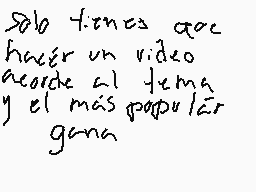 Solo tienes que
hacér un video
acorde al tema
y el más populár
gana